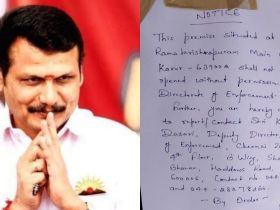 NOTICE
This premise situated at
Ramakrishnapuram Main
Karur - 639001 shall not
opened without permission
Directorate of Enforcement.
Further, you are hereby
to report/contact Shri K
Dasari, Deputy Director
of Enforcement, Chennai
4th Floor, B Wing, Sha
Bhavan, Haddows Road,
Contact No. 044
and 044 -
- By Order -